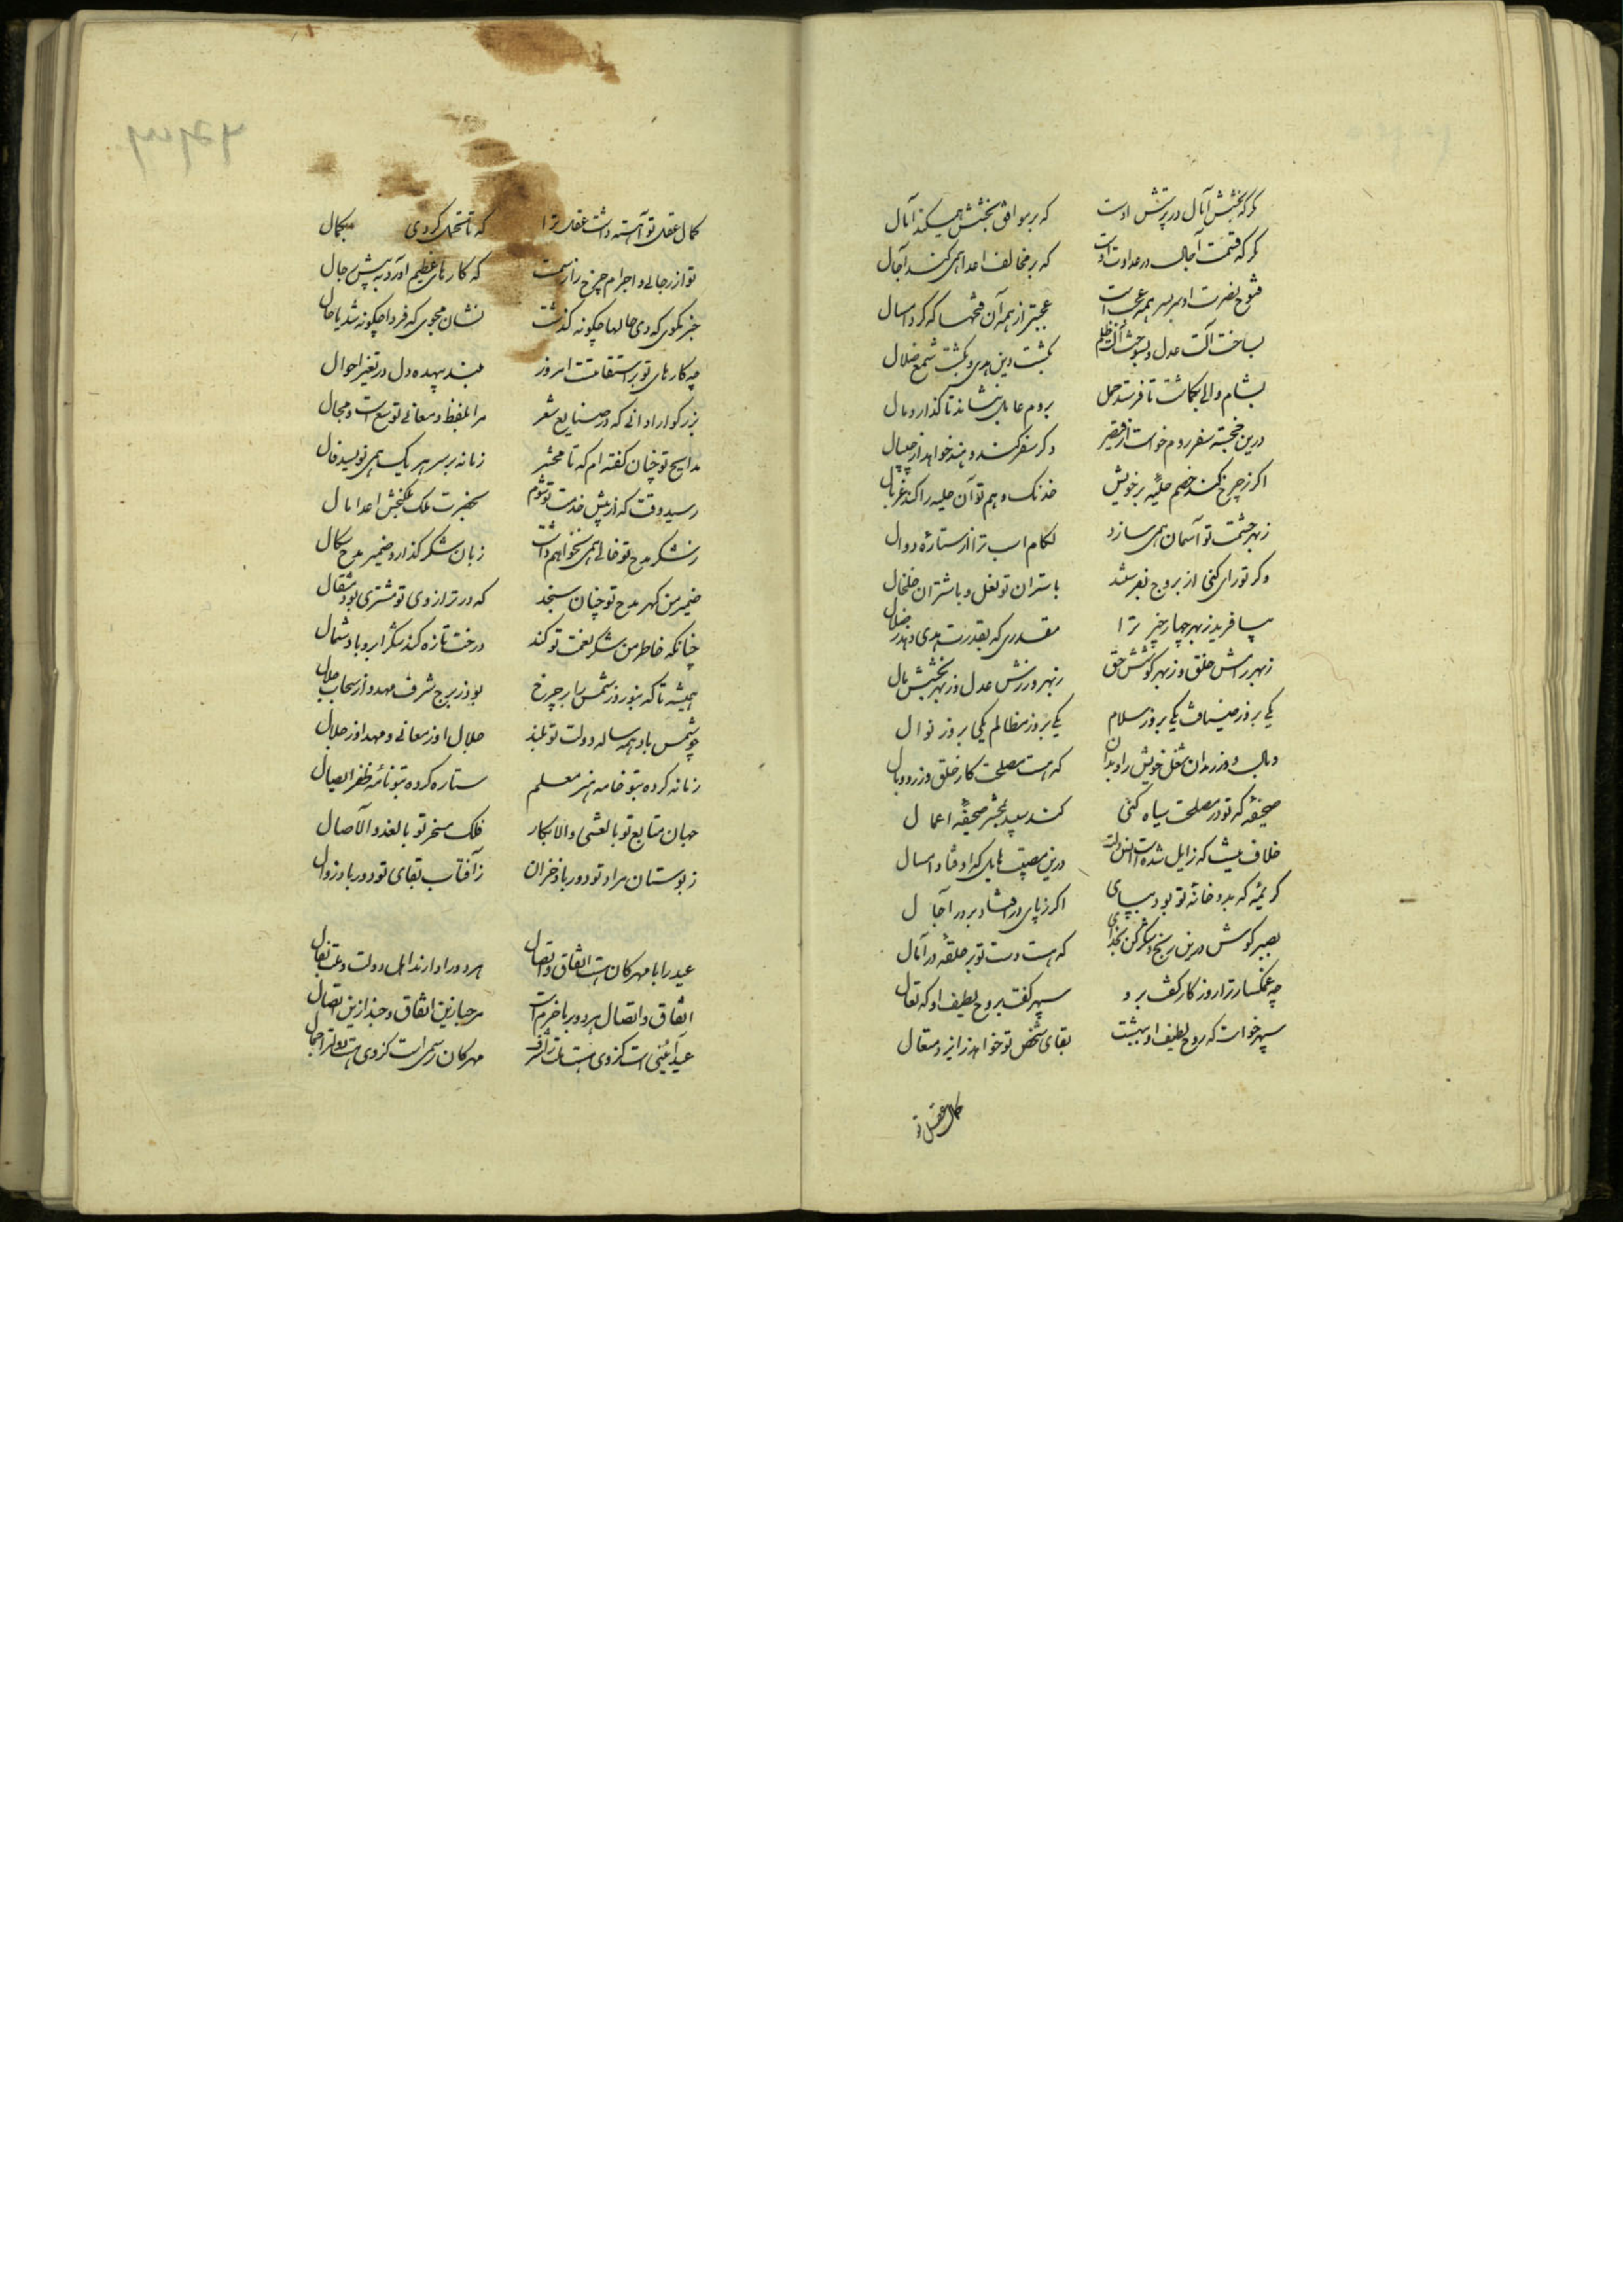 مگر که بخشش آمال در پرستش اوست که بر موافق بخشش همیکند آمال
مگر که قسمت آجال در عداوت اوست که بر مخالف اعدا همی کند آجال
فتوح نصرت او سربسر همه عجبست عجبتر از همه آن فتحها که کرد امسال
بساخت آلت عدل و بسوخت آلت ظلم بکشت دین هدی و بکشت شمع ضلال
بشام والی بگماشت تا فرستد حمل بروم عامل بنشاند تا گذارد مال
درین خجسته سفر روم خواست از قیصر دگر سفر کند و هند خواهد از چیپال
اگر ز چرخ کند خصم حلیه بر خویش خدنگ وهم تو آن حلیه را کند غربال
ز بهر حشمت تو آسمان همی سازد لگام اسب ترا از ستاره و دوال
وگر تو رای کنی از بروج بفرستد باستران تو نعل و باشتران خلخال
بیافرید ز بهر چهار چیز ترا مقدری که بقدرت هدی دهد ز ضلال
ز بهر رامش خلق و ز بهر کوشش حق ز بهر ورزش عدل و ز بهر بخشش مال
یکی بروز مصاف یکی بروز سلام یکی بروز مظالم یکی بروز نوال
وبال وزر مدان شغل خویش را و بدان که هست مصلحت کار خلق وزر و وبال
صحیفه که تو در مصلحت سیاه کنی کند سپید بحشر صحیفه اعمال
خلاف نیست که زایل شده است انس دلت درین مصیبت هایل که اوفتاد امسال
کریمه که بدو خانه تو بود بپای اگر ز پای درافتاد بر در آجال
بصبر کوش درین رنج و شکر کن بخدای که هست دست تو بر حلقه در آمال
چه غمگسار ترا روزگار کف برد سپهر گفت بروح لطیف او که تعال
سپهر خواست که روح لطیف او ببهشت بقای شخص تو خواهد ز ایزد متعال
کمال عقل تو
کمال عقل تو آهسته داشت عقل ترا که تا تحمل کردی بکمال
تو از رجالی و اجرام چرخ را رسمست که کارهای عظیم آورد به پیش رجال
خبر مگوی که دی حالها چگونه گذشت نشان مجوی که فردا چگونه شد یا حال
چه کارهای تو بر استقامتست امروز مبند بیهده دل در تغیر احوال
بزرگوارا دانی که در صنایع شعر مرا بلفظ و معانی توسع است و مجال
مدایح تو چنان گفته ام که تا محشر زمانه بر سر هر یک همی نویسد فال
رسید وقت که از پیش خدمت تو شوم بحضرت ملک ملکبخش اعدا مال
ز شکر مدح تو خالی همی نخواهم داشت زبان شکرگذار و ضمیر مدح سگال
ضمیر من گهر مدح تو چنان سنجد که در ترازوی تو مشتری بود مثقال
چنانکه خاطر من شکر نعمت تو کند درخت تازه کند شکر ابر و باد شمال
همیشه تا که بنوروز شمس را بر چرخ بود ز برج شرف مهد و از سحاب جلال
چو شمس باد همه ساله دولت تو بلند جلال او ز معانی و مهد او ز جلال
زمانه کرده بتو خامه هنر معلم ستاره کرده بتو نامه ظفر ایصال
جهان متابع تو بالعشی والابکار فلک مسخر تو بالغدو والآصال
ز بوستان مراد تو دور باد خزان ز آفتاب بقای تو دور باد زوال
عید را با مهرکان هست اتفاق و اتصال هر دو را دارند اهل دولت و ملت بفال
اتفاق و اتصال هر دو ما را خرم است مرحبا زین اتفاق و حبذا زین اتصال
عید آئینی است کز وی هست ملت را شرف مهرکان رسمی است کز وی هست دولت را جمال